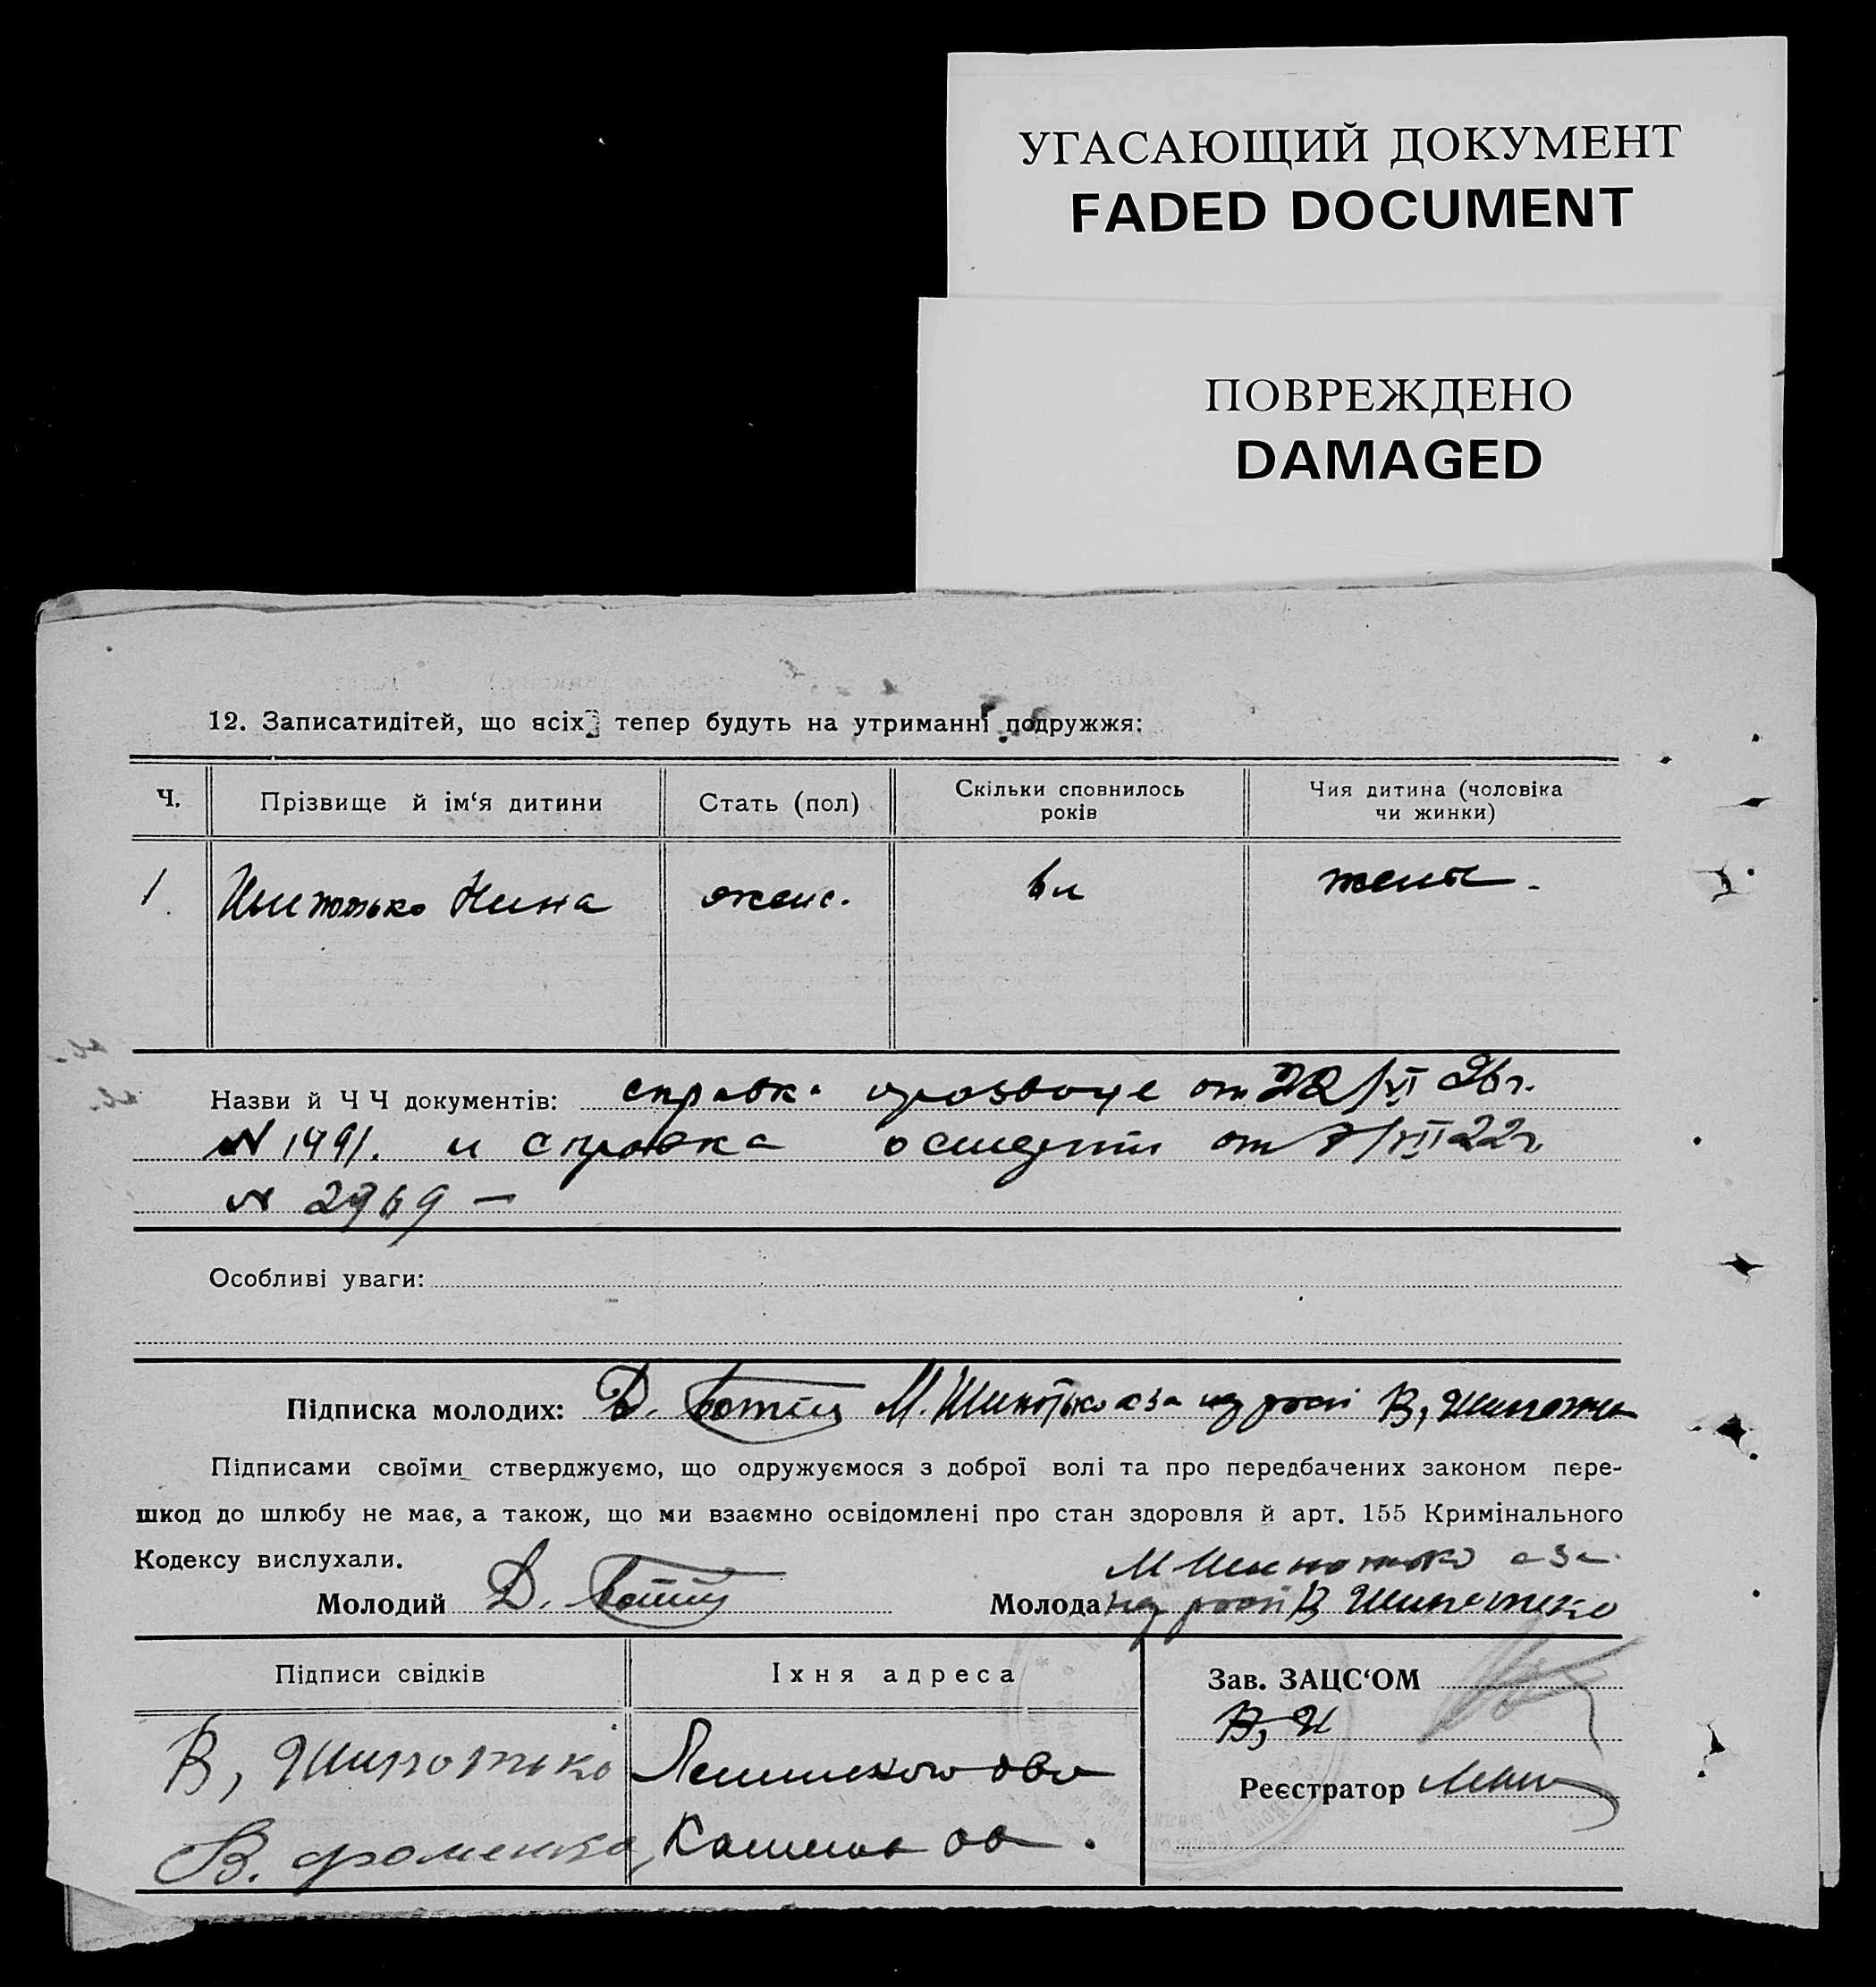 УГАСАЮЩИЙ ДОКУМЕНТ
FADED DOCUMENT
ПОВРЕЖДЕНО
DAMAGED
12. Записатидітей, що всіх тепер будуть на утриманні подружжя:
Ч. Прізвище й ім‘я дитини Стать (пол) Скільки сповнилось років Чия дитина (чоловіка чи жинки)
1 Нина женс. 6 л жены.
Назви й Ч Ч документів: справка о розводе от 22/VI 26 г.
N 1491. и справка о смерти от 7/VII 22 г.
N 2969 —
Особливі уваги:
Підписка молодих: Д. М. Шипотько а за В, Шипотько
Підписами своїми стверджуємо, що одружуємося з доброї волі та про передбачених законом пере-
шкод до шлюбу не має, а також, що ми взаємно освідомлені про стан здоровля й арт. 155 Кримінального
Кодексу вислухали.
М Шипотько а за
Молодий Д. Молода В Шипотько
Підписи свідків Їхня адреса Зав. ЗАЦС‘ОМ
В, Шипотько
Реєстратор
В. Фоменко,